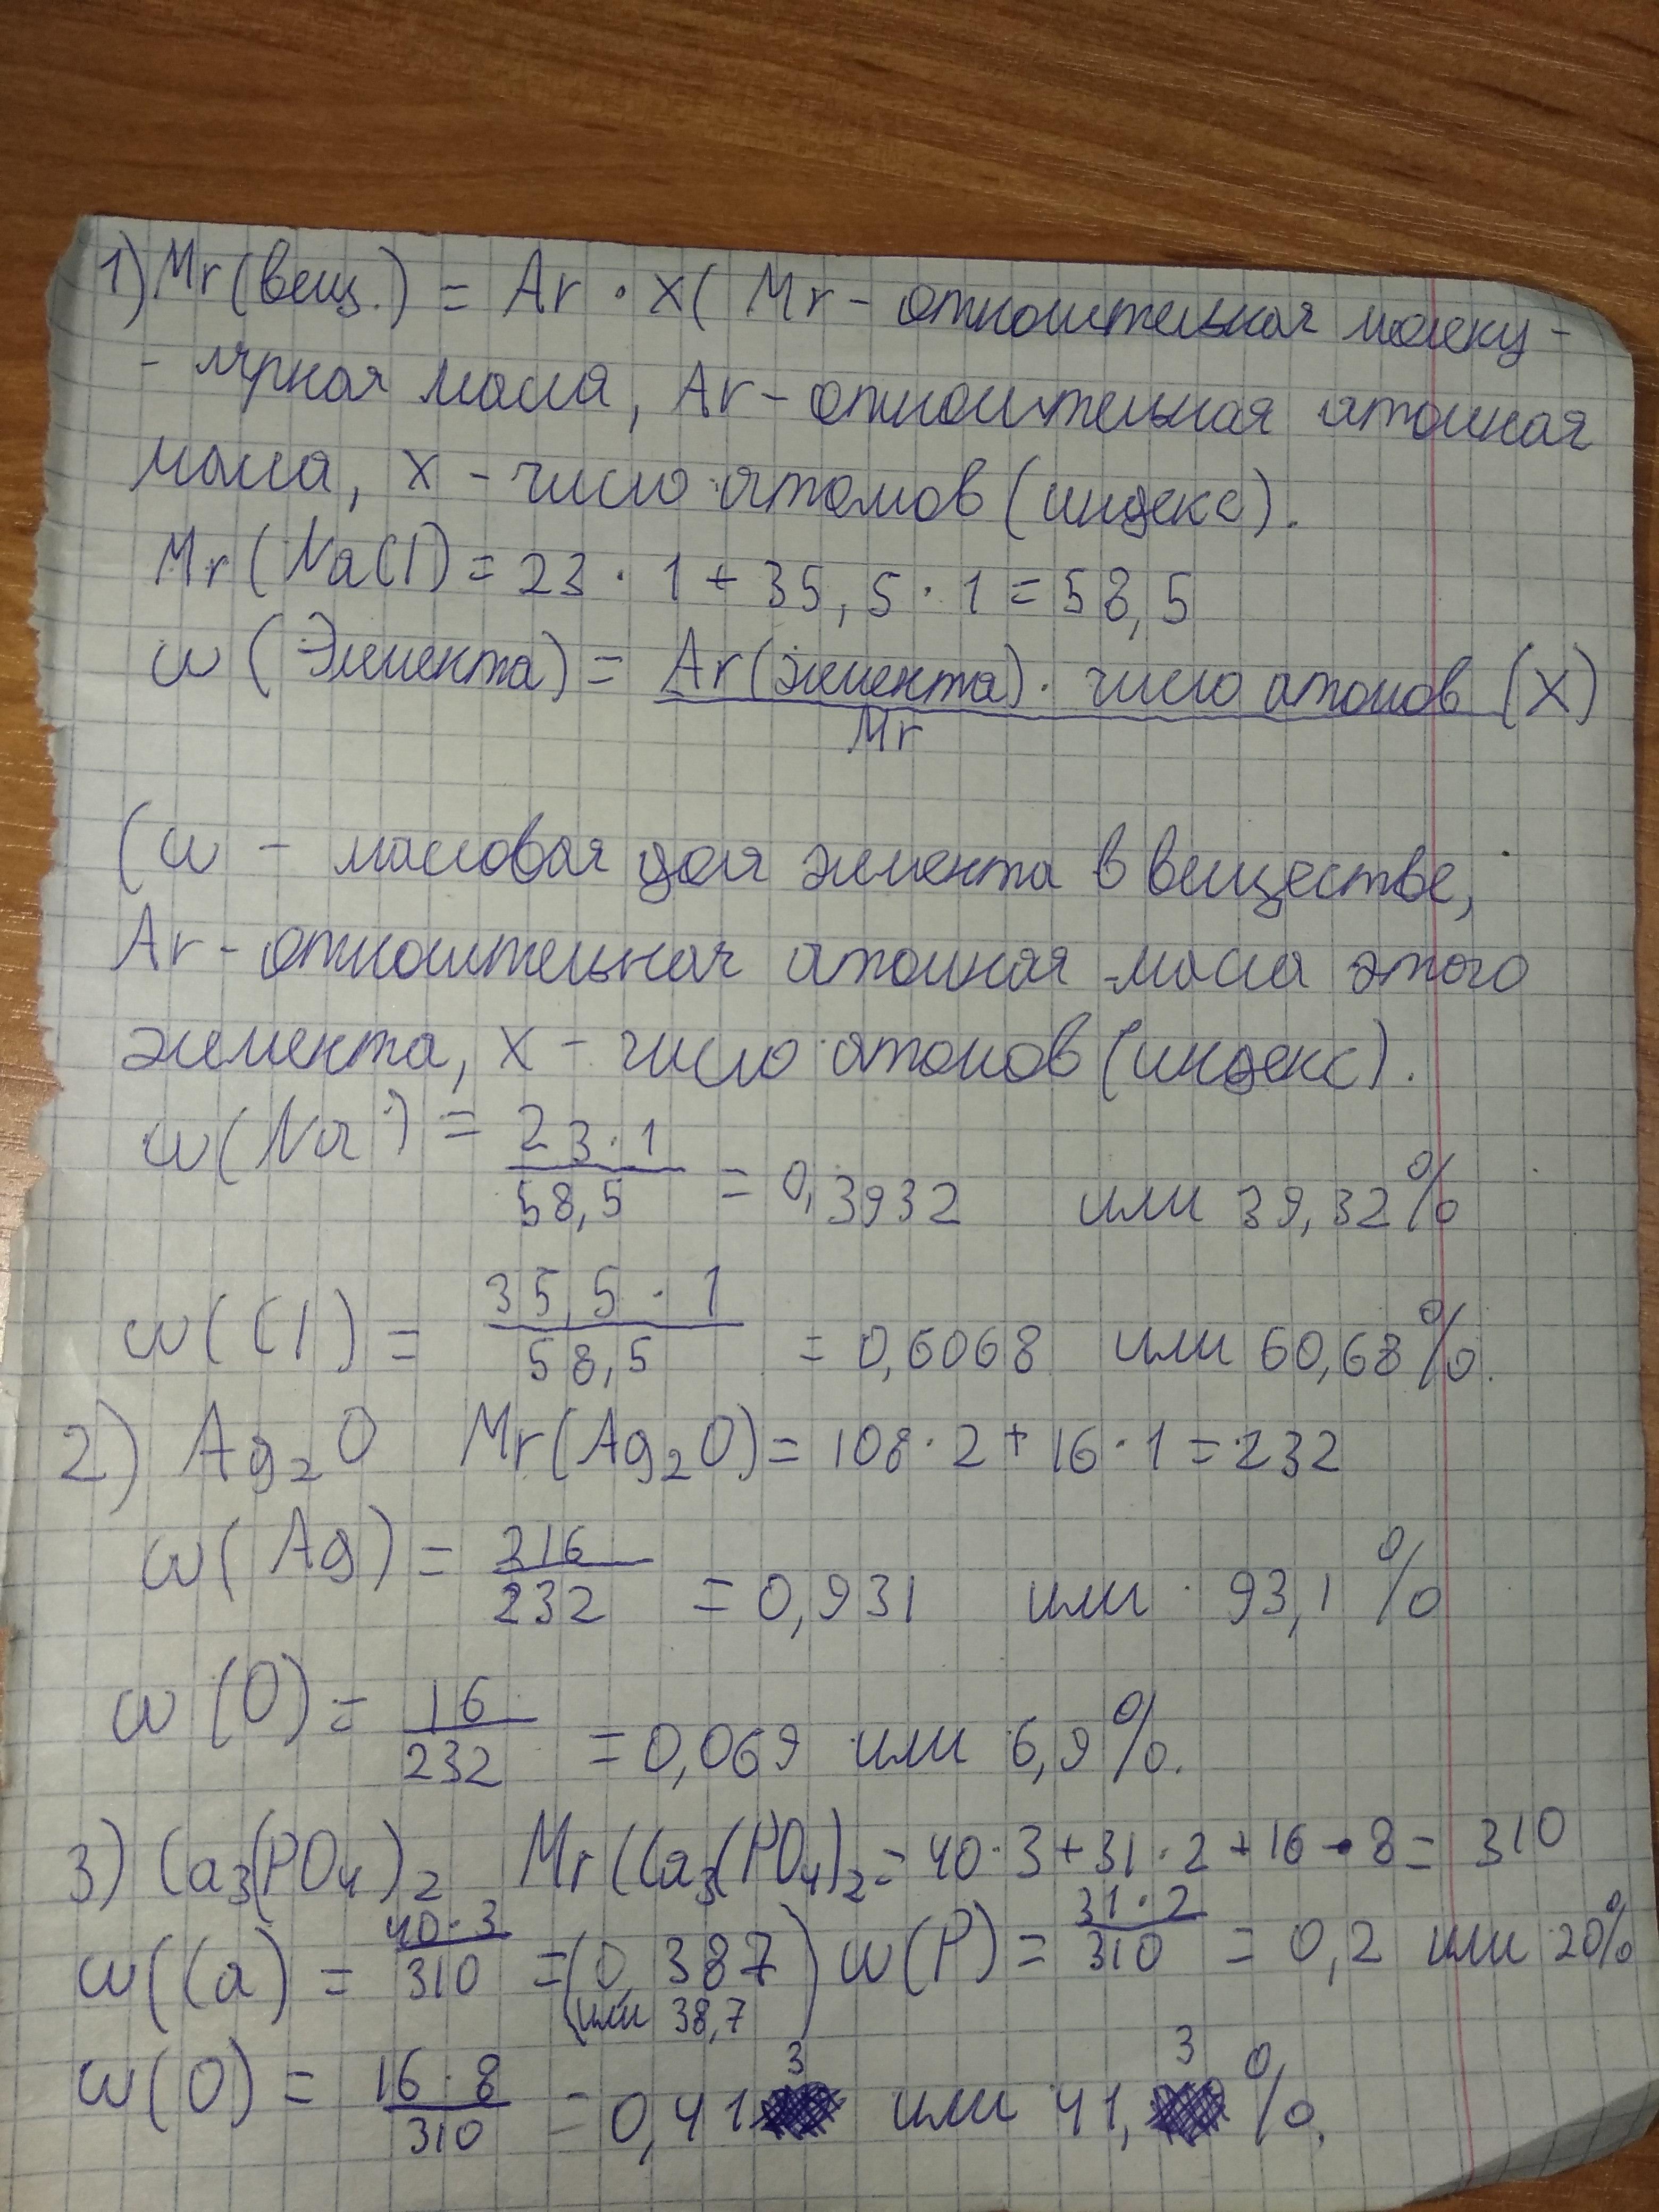 1) Mr(вещ.) = Ar · x ( Mr - относительная молеку -
- лярная масса, Ar - относительная атомная
масса, x - число атомов (индекс).
Mr(NaCl) = 23 · 1 + 35,5 · 1 = 58,5
ω (Элемента) = Ar(элемента) · число атомов (X)
Mr
(ω - массовая доля элемента в веществе,
Ar - относительная атомная масса этого
элемента, x - число атомов (индекс).
ω(Na) = 23 · 1 / 58,5 = 0,3932 или 39,32%
ω(Cl) = 35,5 · 1 / 58,5 = 0,6068 или 60,68%.
2) Ag₂O Mr(Ag₂O) = 108 · 2 + 16 · 1 = 232
ω(Ag) = 216 / 232 = 0,931 или 93,1 %
ω(O) = 16 / 232 = 0,069 или 6,9%.
3) Ca₃(PO₄)₂ Mr(Ca₃(PO₄)₂ = 40 · 3 + 31 · 2 + 16 · 8 = 310
ω(Ca) = 40 · 3 / 310 = (0,387 ) ω(P) = 31 · 2 / 310 = 0,2 или 20%
(или 38,7
ω(O) = 16 · 8 / 310 = 0,413 или 41,3 %.